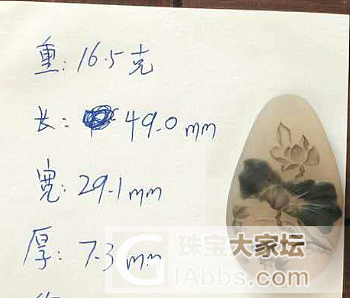 重：16.5克
长：49.0mm
宽：29.1mm
厚：7.3mm
珠宝大家坛
GIAbbs.com